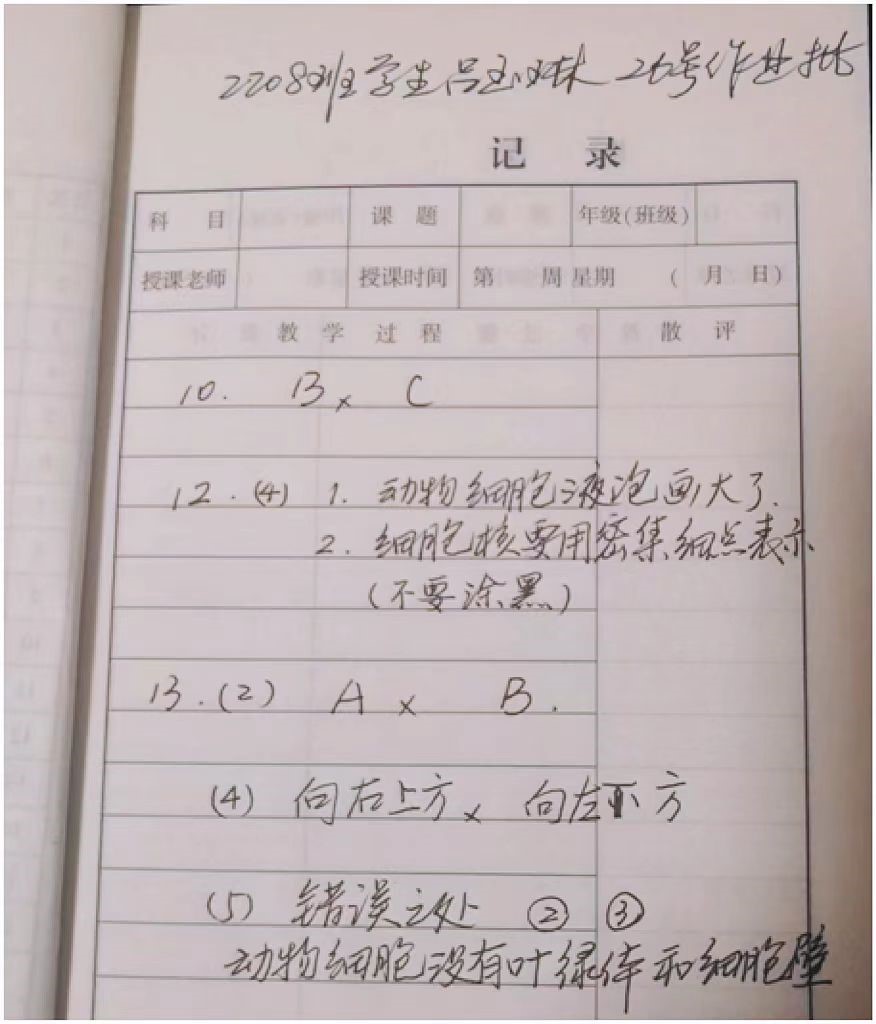 2208班学生吕玉妹 26号作业批
记 录
科 目 课 题 年级(班级)
授课老师 授课时间 第 周 星期 ( 月 日)
教 学 过 程 散 评
10. B × C
12.(4) 1. 动物细胞液泡画大了.
2. 细胞核要用密集细点表示
(不要涂黑)
13.(2) A × B.
(4) 向右上方 × 向左下方
(5) 错误之处 ② ③
动物细胞没有叶绿体和细胞壁